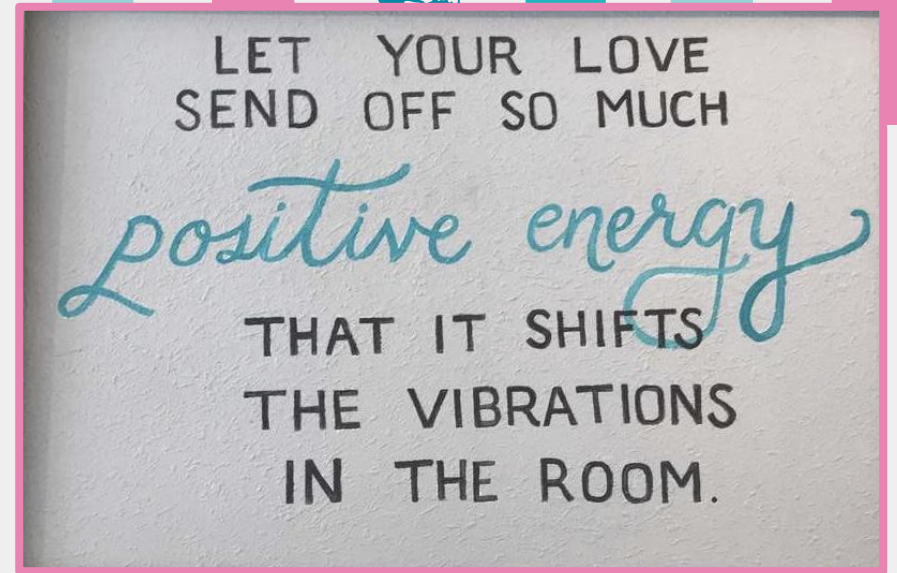 LET YOUR LOVE
SEND OFF SO MUCH
positive energy
THAT IT SHIFTS
THE VIBRATIONS
IN THE ROOM.